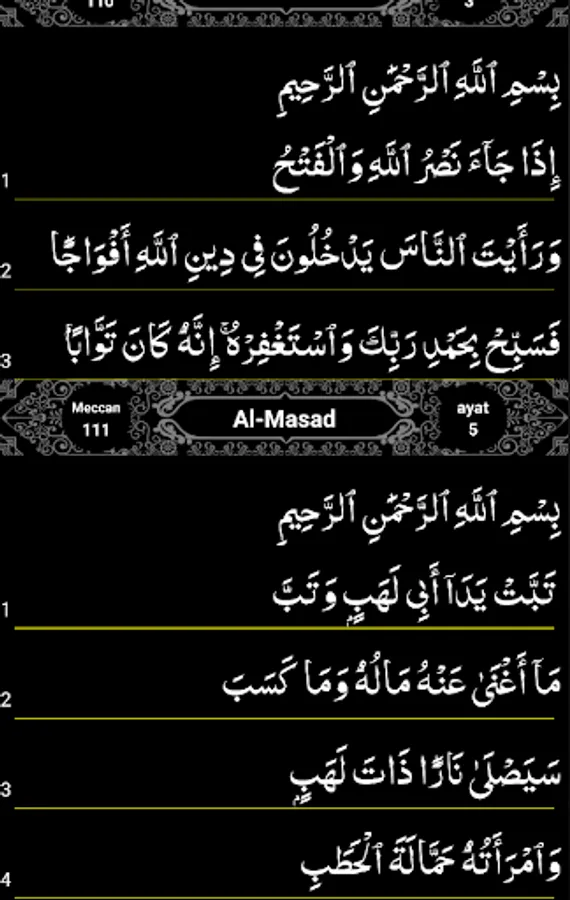 110 3
بِسْمِ ٱللَّهِ ٱلرَّحْمَٰنِ ٱلرَّحِيمِ
إِذَا جَآءَ نَصْرُ ٱللَّهِ وَٱلْفَتْحُ
1
وَرَأَيْتَ ٱلنَّاسَ يَدْخُلُونَ فِى دِينِ ٱللَّهِ أَفْوَاجًا
2
فَسَبِّحْ بِحَمْدِ رَبِّكَ وَٱسْتَغْفِرْهُ ۚ إِنَّهُۥ كَانَ تَوَّابًۢا
3
Meccan Al-Masad ayat
111 5
بِسْمِ ٱللَّهِ ٱلرَّحْمَٰنِ ٱلرَّحِيمِ
تَبَّتْ يَدَآ أَبِى لَهَبٍ وَتَبَّ
1
مَآ أَغْنَىٰ عَنْهُ مَالُهُۥ وَمَا كَسَبَ
2
سَيَصْلَىٰ نَارًا ذَاتَ لَهَبٍ
3
وَٱمْرَأَتُهُۥ حَمَّالَةَ ٱلْحَطَبِ
4